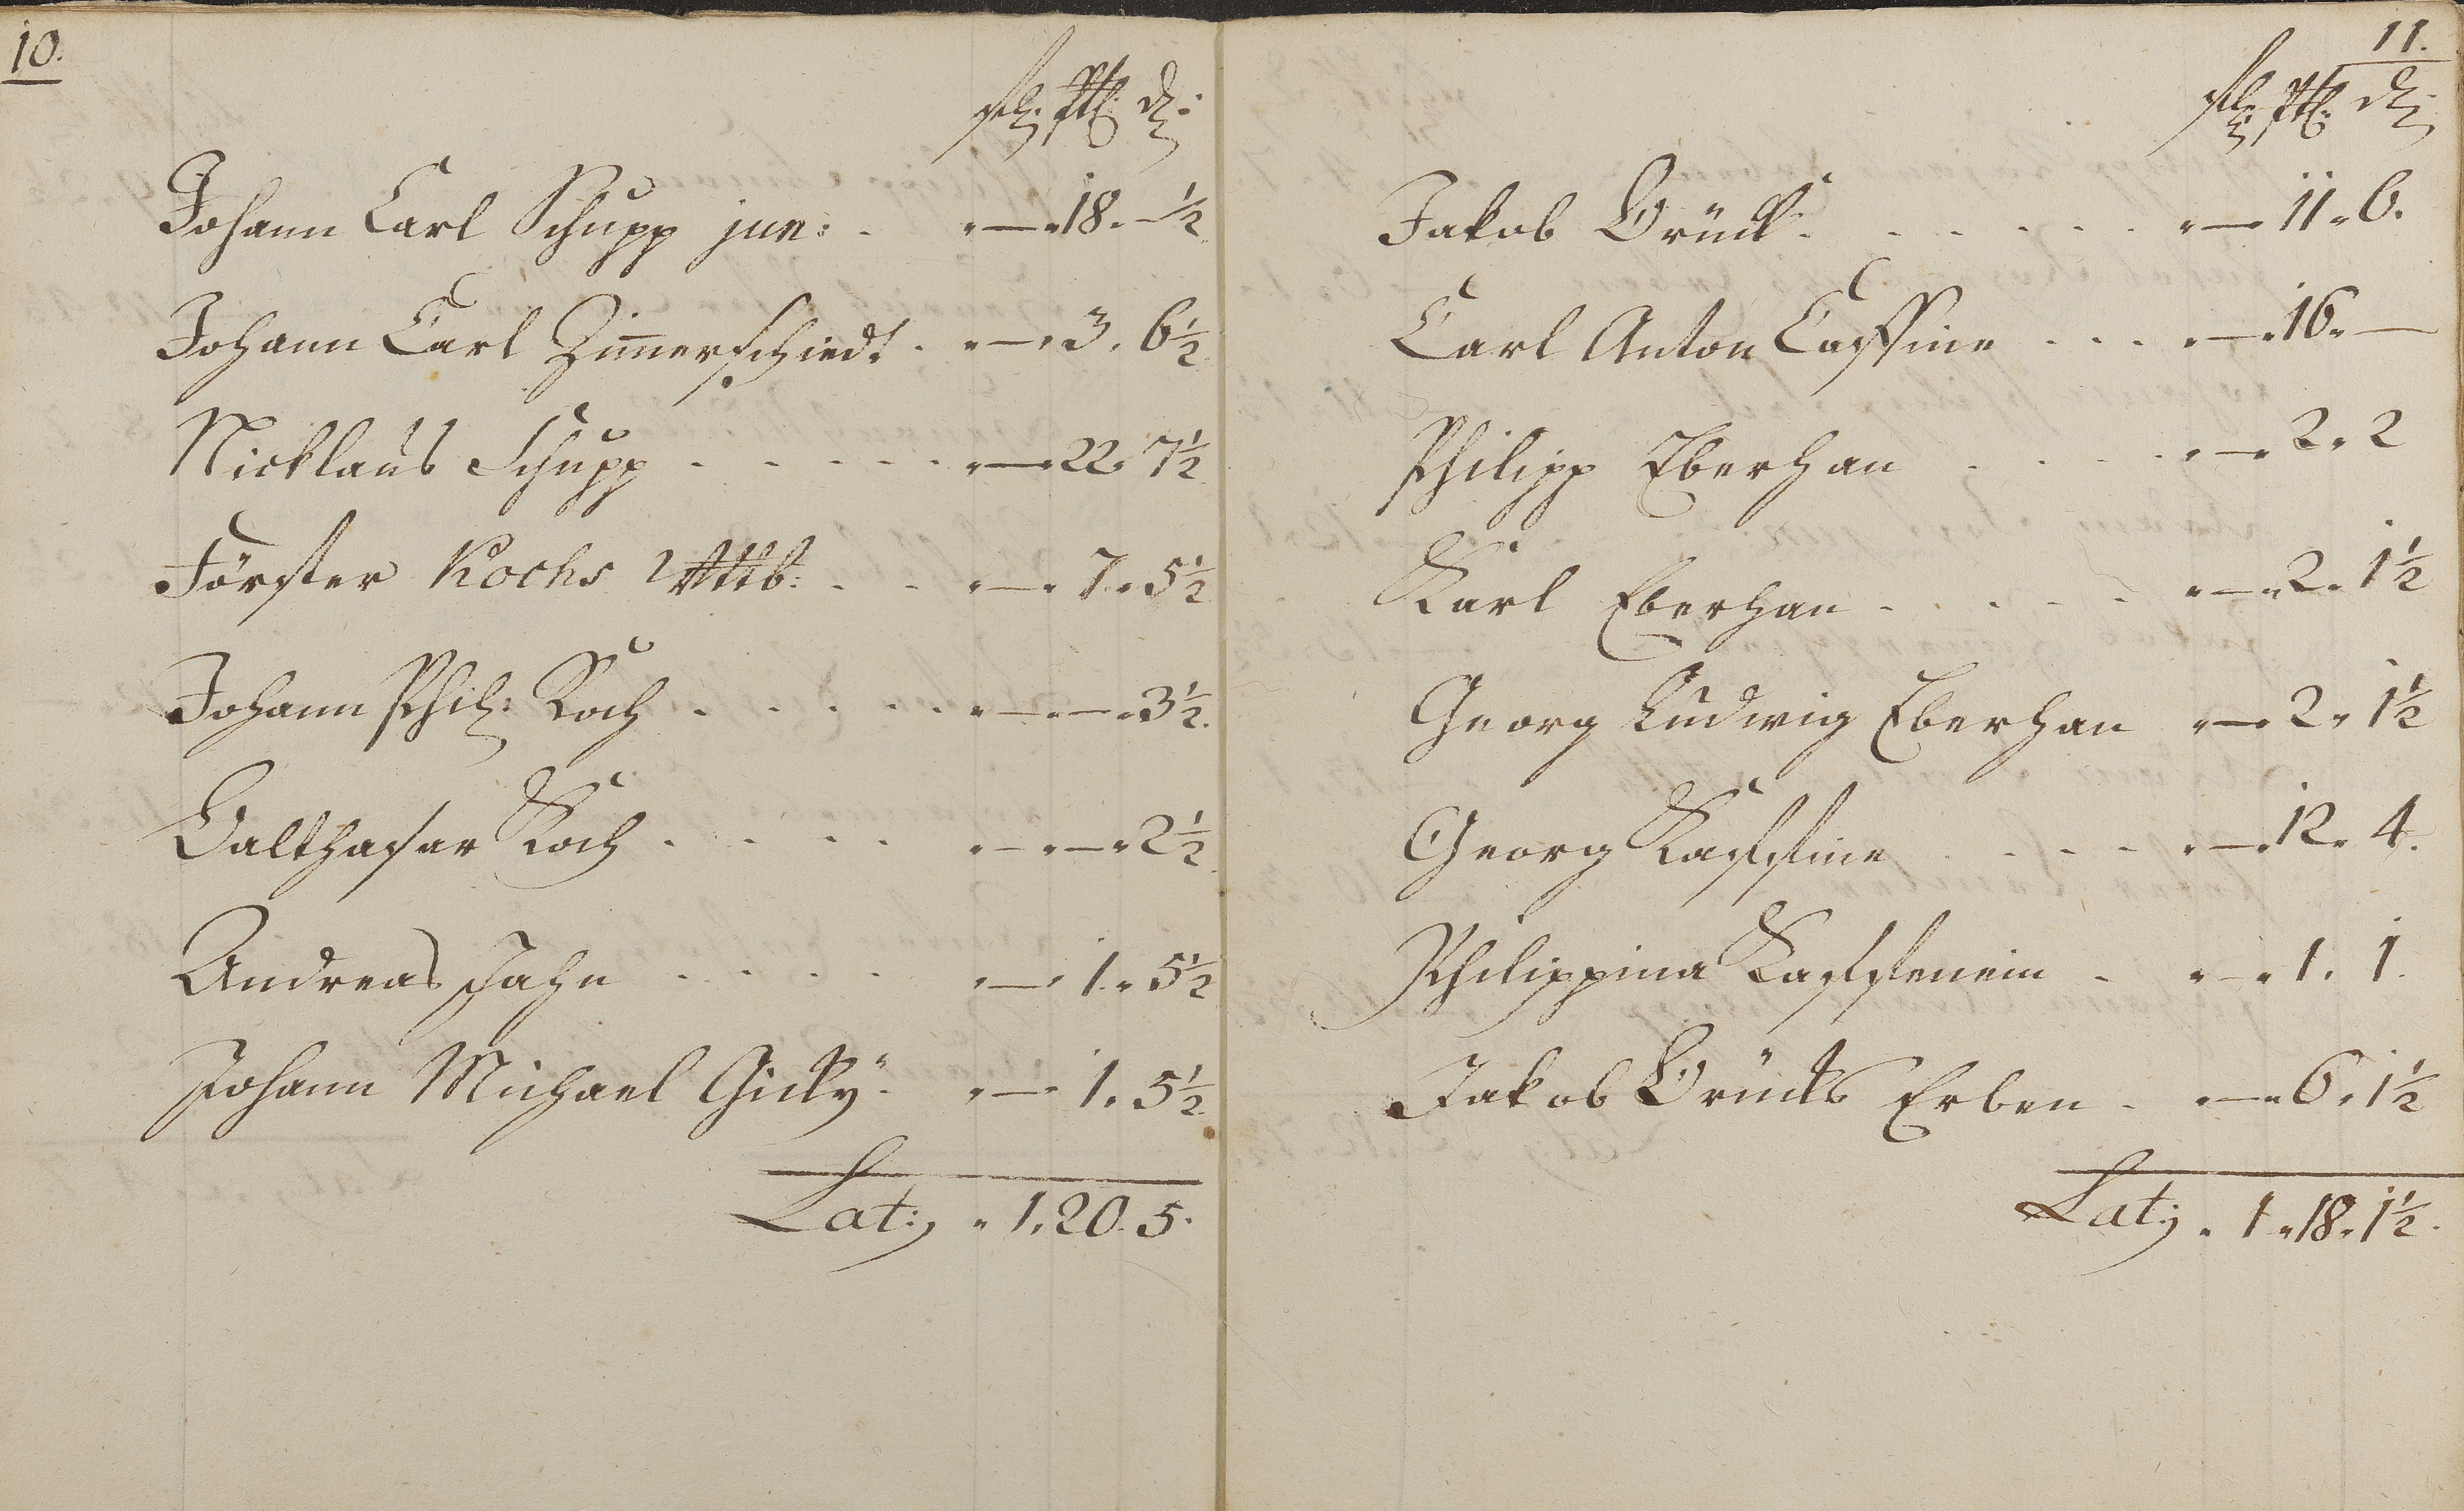 10.
fl: ttl: d:
Johann Carl Schupp jun: . "—"18. — ½
Johann Carl Zim̄erschiedt . "—"3. 6½
Nicklaus Schupp . . . . . "—"22. 7½
Förster Kochs Wttb: . . "—" 7. 5½
Johann Phil: Koch . . . . . "—"—"3½.
Balthasar Koch . . . . "—"—"2½
Andreas Jahn . . . . "—" 1. 5½
Johann Michael Gicky . "—" 1. 5½
Lat: " 1. 20. 5.
11.
fl: ttl: d:
Jakob Brück . . . . . . "—"11. 6.
Carl Anton Cassine . . . "—"16. —
Philipp Eberhan . . . . "—"2. 2
Karl Eberhan . . . . "—"2. 1½
Georg Ludwig Eberhan "—"2. 1½
Georg Kassine . . . . "—"12. 4.
Philippina Kassenein . "—"1. 1.
Jakob Brücks Erben . "—"6. 1½
Lat: . 1. 18. 1½.